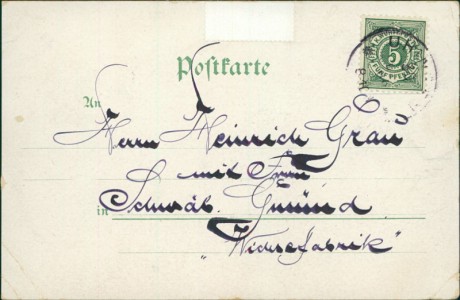 Postkarte
An
Herrn Heinrich Grau
mit Frau
in Schwäb. Gmünd
"Wichsefabrik"
5
FÜNF PFENNIG